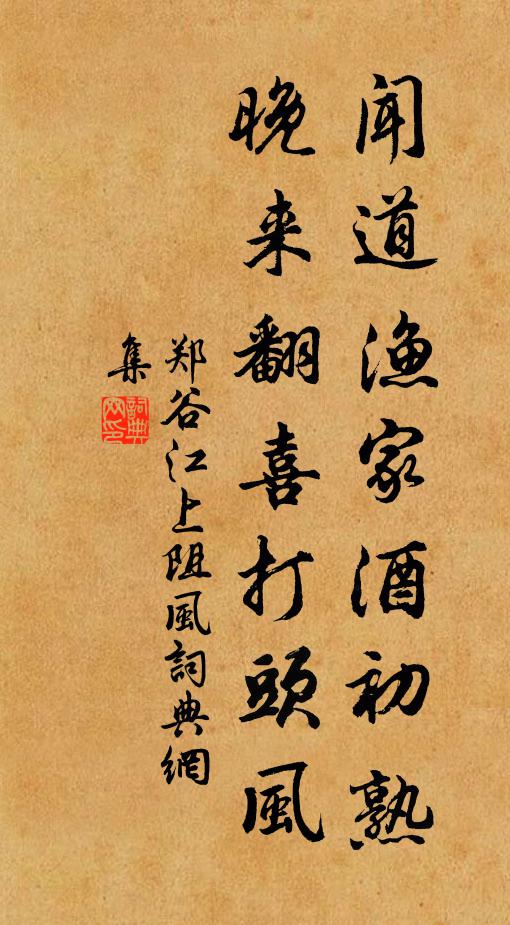 闻道渔家酒初熟
晚来翻喜打頭風
郑谷江上阻風詞典網
集
詞典網印